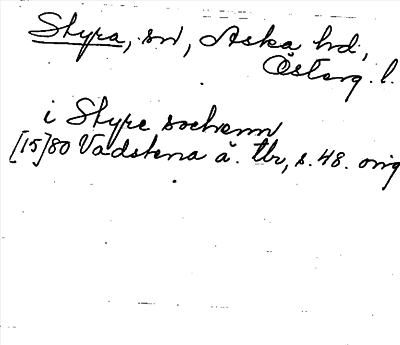 Styra, sn, Aska hd,
Österg. l.
i Styre sochenn
[15]80 Vadstena å. tbr, s. 48. orig